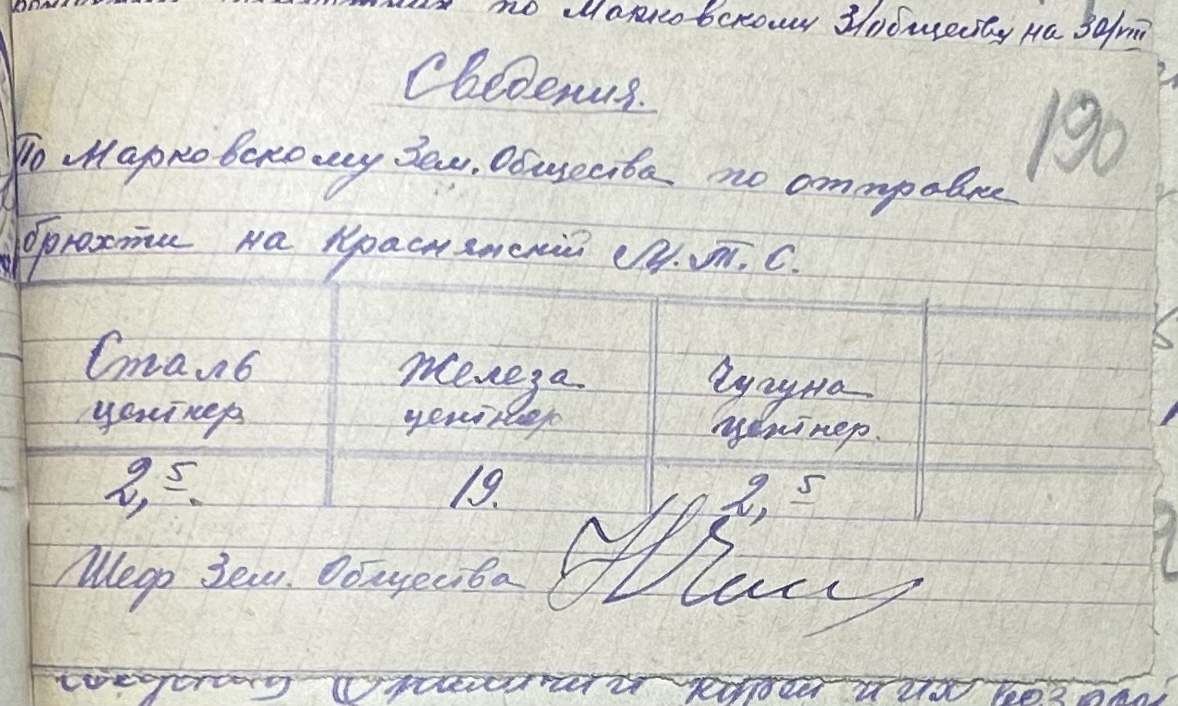 по Марковскому З/обществу на 30/III
Сведения.
190
По Марковскому Зем. Общества по отправке
брюхти на Краснянскій М.Т.С.
Сталь центнер Железа центнер Чугуна центнер.
2,5. 19. 2,5
Шеф Зем. Общества